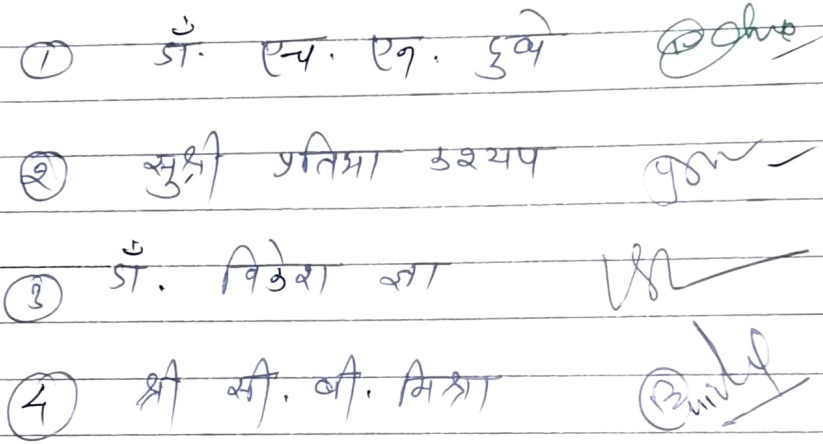 ① डॉ. एच. एन. दुबे
② सुश्री प्रतिमा कश्यप
③ डॉ. विकेश झा
④ श्री सी. बी. मिश्रा